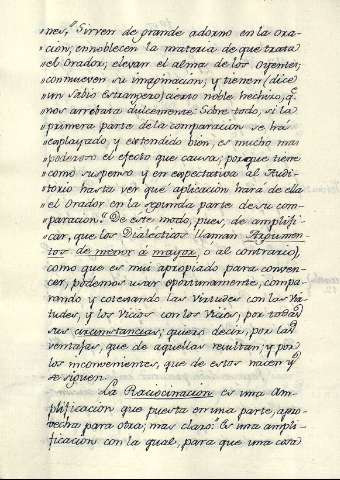 "nes." Sirven de grande adorno en la ora-
"cion; ennoblecen la materia de que trata
"el Orador; elevan el alma de los Oyentes;
"conmueven su imaginacion; y tienen (dice
"un sabio estrangero) cierto noble hechizo, q.
"nos arrebata dulcemente. Sobre todo, si la
"primera parte de la comparacion se há
"explayado, y extendido bien, es mucho mas
"poderoso el efecto que causa; porque tiene
"como suspenso y en espectativa al Audi-
"torio hasta ver que aplicacion hará de ella
"el Orador en la segunda parte de su com-
"paracion." De este modo, pues, de amplifi-
car, que los Dialecticos llaman Argumen-
tos de menor á mayor, o al contrario),
como que es mui apropiado para conven-
cer, podemos usar oportunamente, compa-
rando y cotexando las Virtudes con las Vir-
tudes, y los Vicios con los Vicios, por todas
sus circunstancias; quiero decir, por las
ventajas, que de aquellas resultan; y por
los inconvenientes, que de estos nacen y
se siguen.
La Raciocinacion es una Am-
plificacion que puesta en una parte, apro-
vecha para otra; mas claro: Es una ampli-
ficacion con la qual, para que una cosa